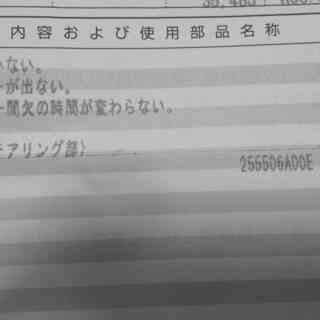 35,485
内容および使用部品名称
ない。
が出ない。
間欠の時間が変わらない。
アリング部）
255506A00E